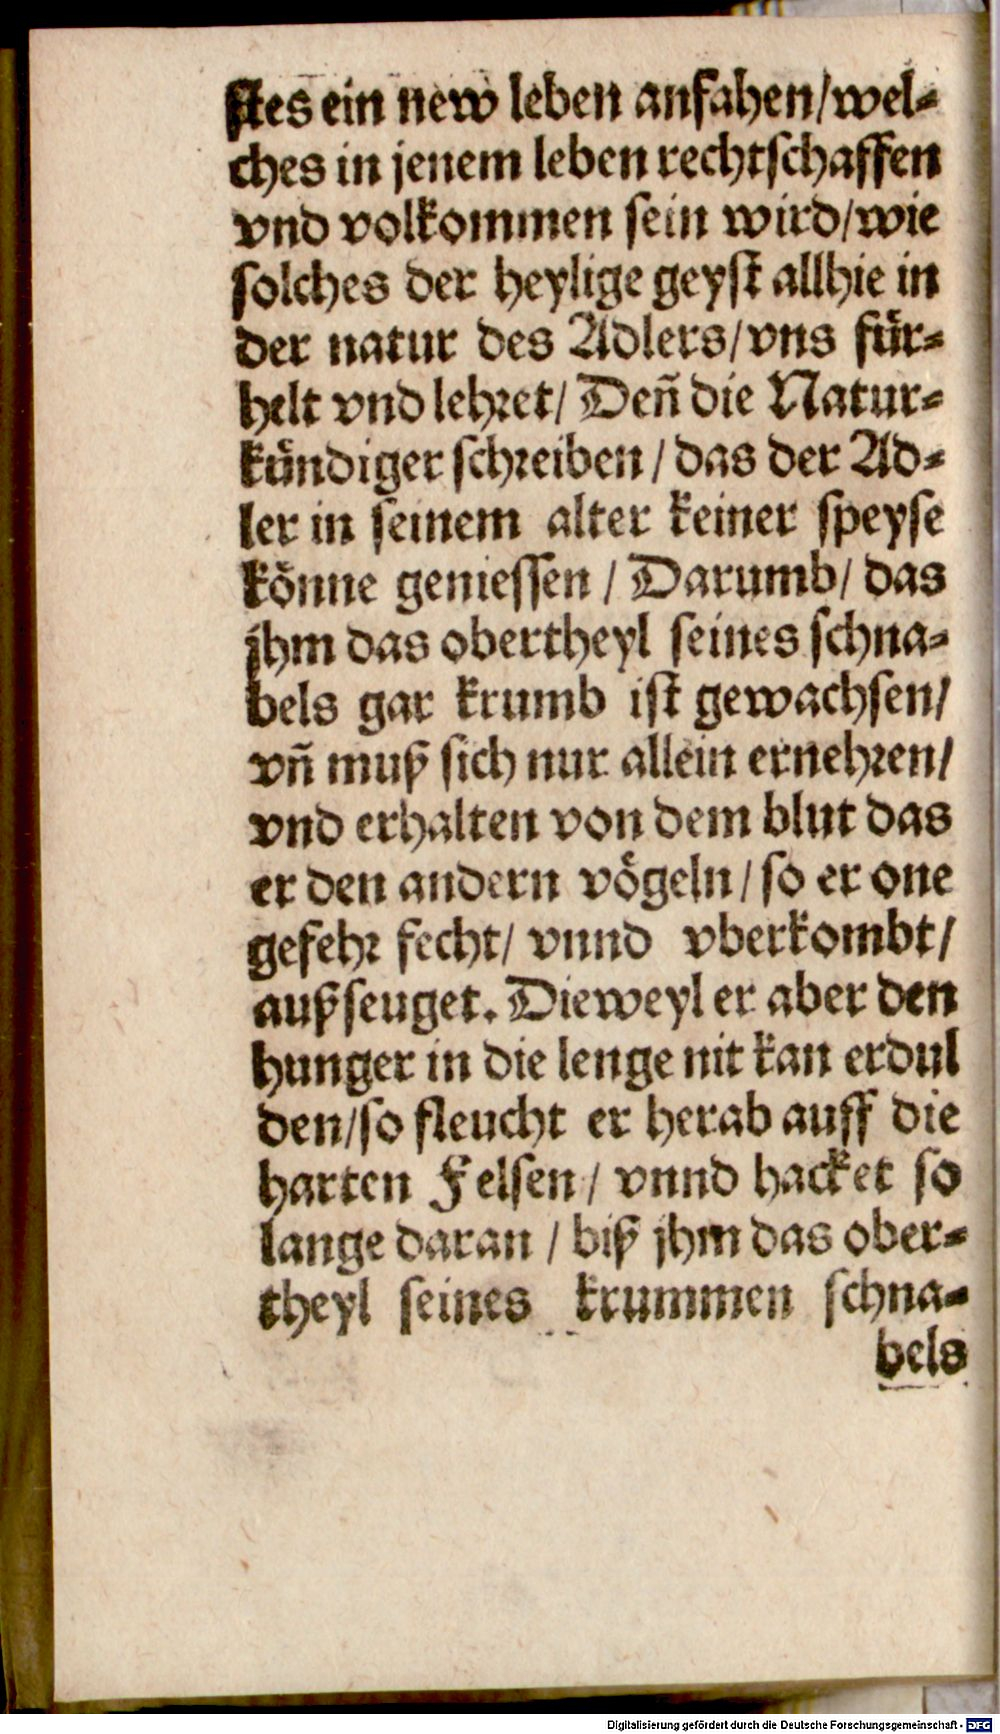 stes ein new leben anfahen/wel⸗
ches in jenem leben rechtschaffen
vnd volkommen sein wird/wie
solches der heylige geyst allhie in
der natur des Adlers/vns fuͤr⸗
helt vnd lehret/ Deñ die Natur⸗
kuͤndiger schreiben / das der Ad⸗
ler in seinem alter keiner speyse
koͤnne geniessen / Darumb/ das
jhm das obertheyl seines schna⸗
bels gar krumb ist gewachsen/
vñ muß sich nur allein ernehren/
vnd erhalten von dem blut das
er den andern voͤgeln/ so er one
gefehr fecht/ vnnd vberkombt/
außseuget. Dieweyl er aber den
hunger in die lenge nit kan erdul
den/so fleucht er herab auff die
harten Felsen/ vnnd hacket so
lange daran / biß jhm das ober⸗
theyl seines krummen schna⸗
bels
Digitalisierung gefördert durch die Deutsche Forschungsgemeinschaft - DFG